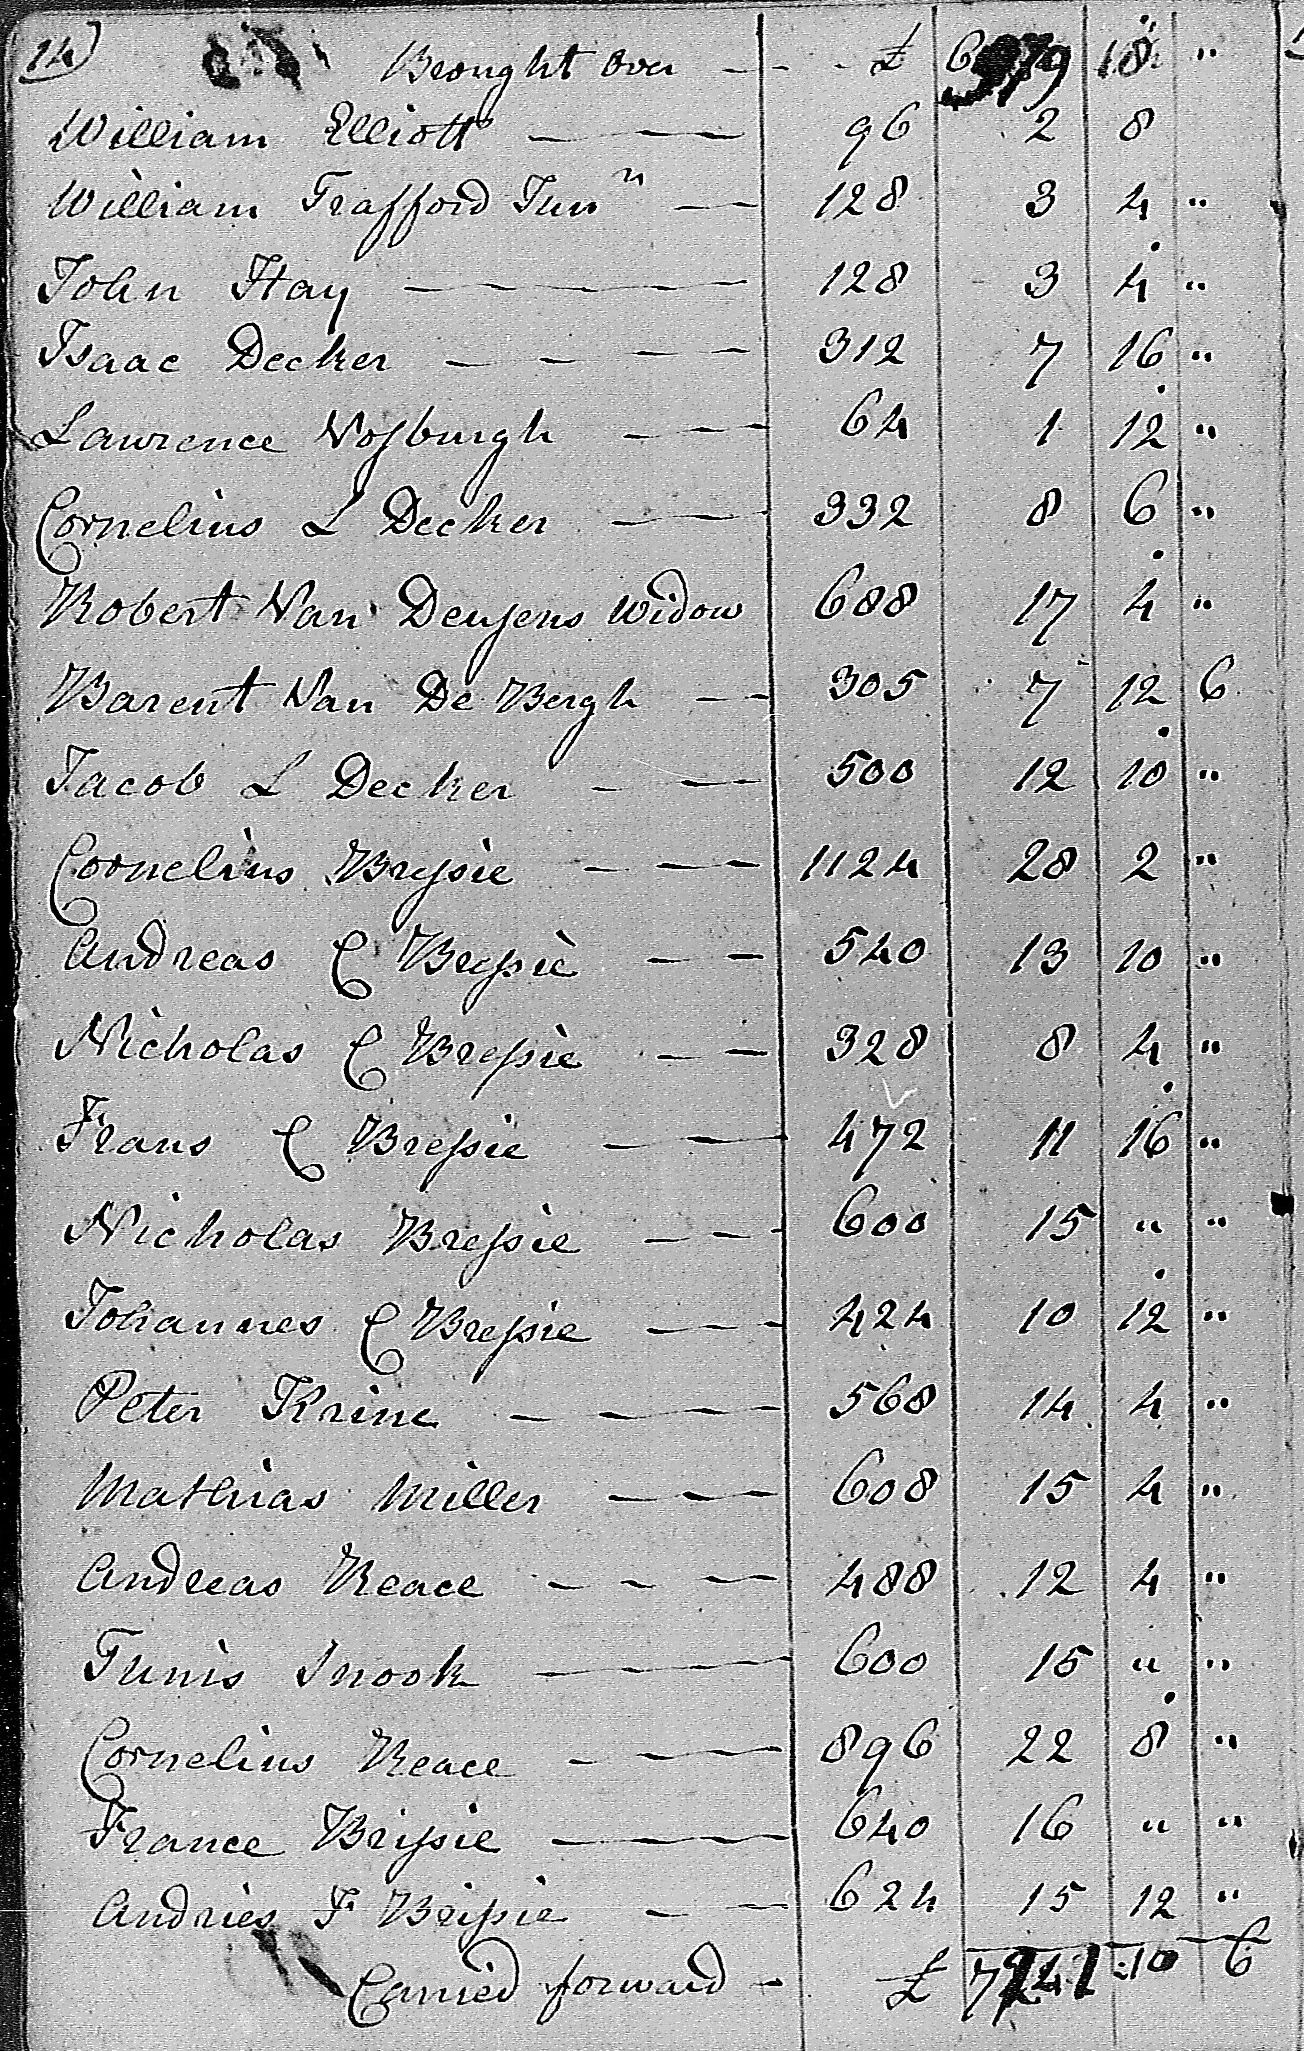 14)
Brought Over - - - £ 6979 18 "
William Elliott 96 2 8
William Trafford Junr 128 3 4 "
John Hay 128 3 4 "
Isaac Decker 312 7 16 "
Lawrence Vosburgh 64 1 12 "
Cornelius L Decker 332 8 6 "
Robert Van Deusens Widow 688 17 4 "
Barent Van De Bergh 305 7 12 6
Jacob L Decker 500 12 10 "
Cornelius Bressie 1124 28 2 "
Andreas C Bressie 540 13 10 "
Nicholas C Bressie 328 8 4 "
Frans C Bressie 472 11 16 "
Nicholas Bressie 600 15 " "
Johannes C Bressie 424 10 12 "
Peter Krine 568 14 4 "
Mathias Miller 608 15 4 "
Andreas Reace 488 12 4 "
Tunis Snook 600 15 " "
Cornelius Reace 896 22 8 "
France Brissie 640 16 " "
Andries F Brissie 624 15 12 "
Carried forward - £ 7241 10 6